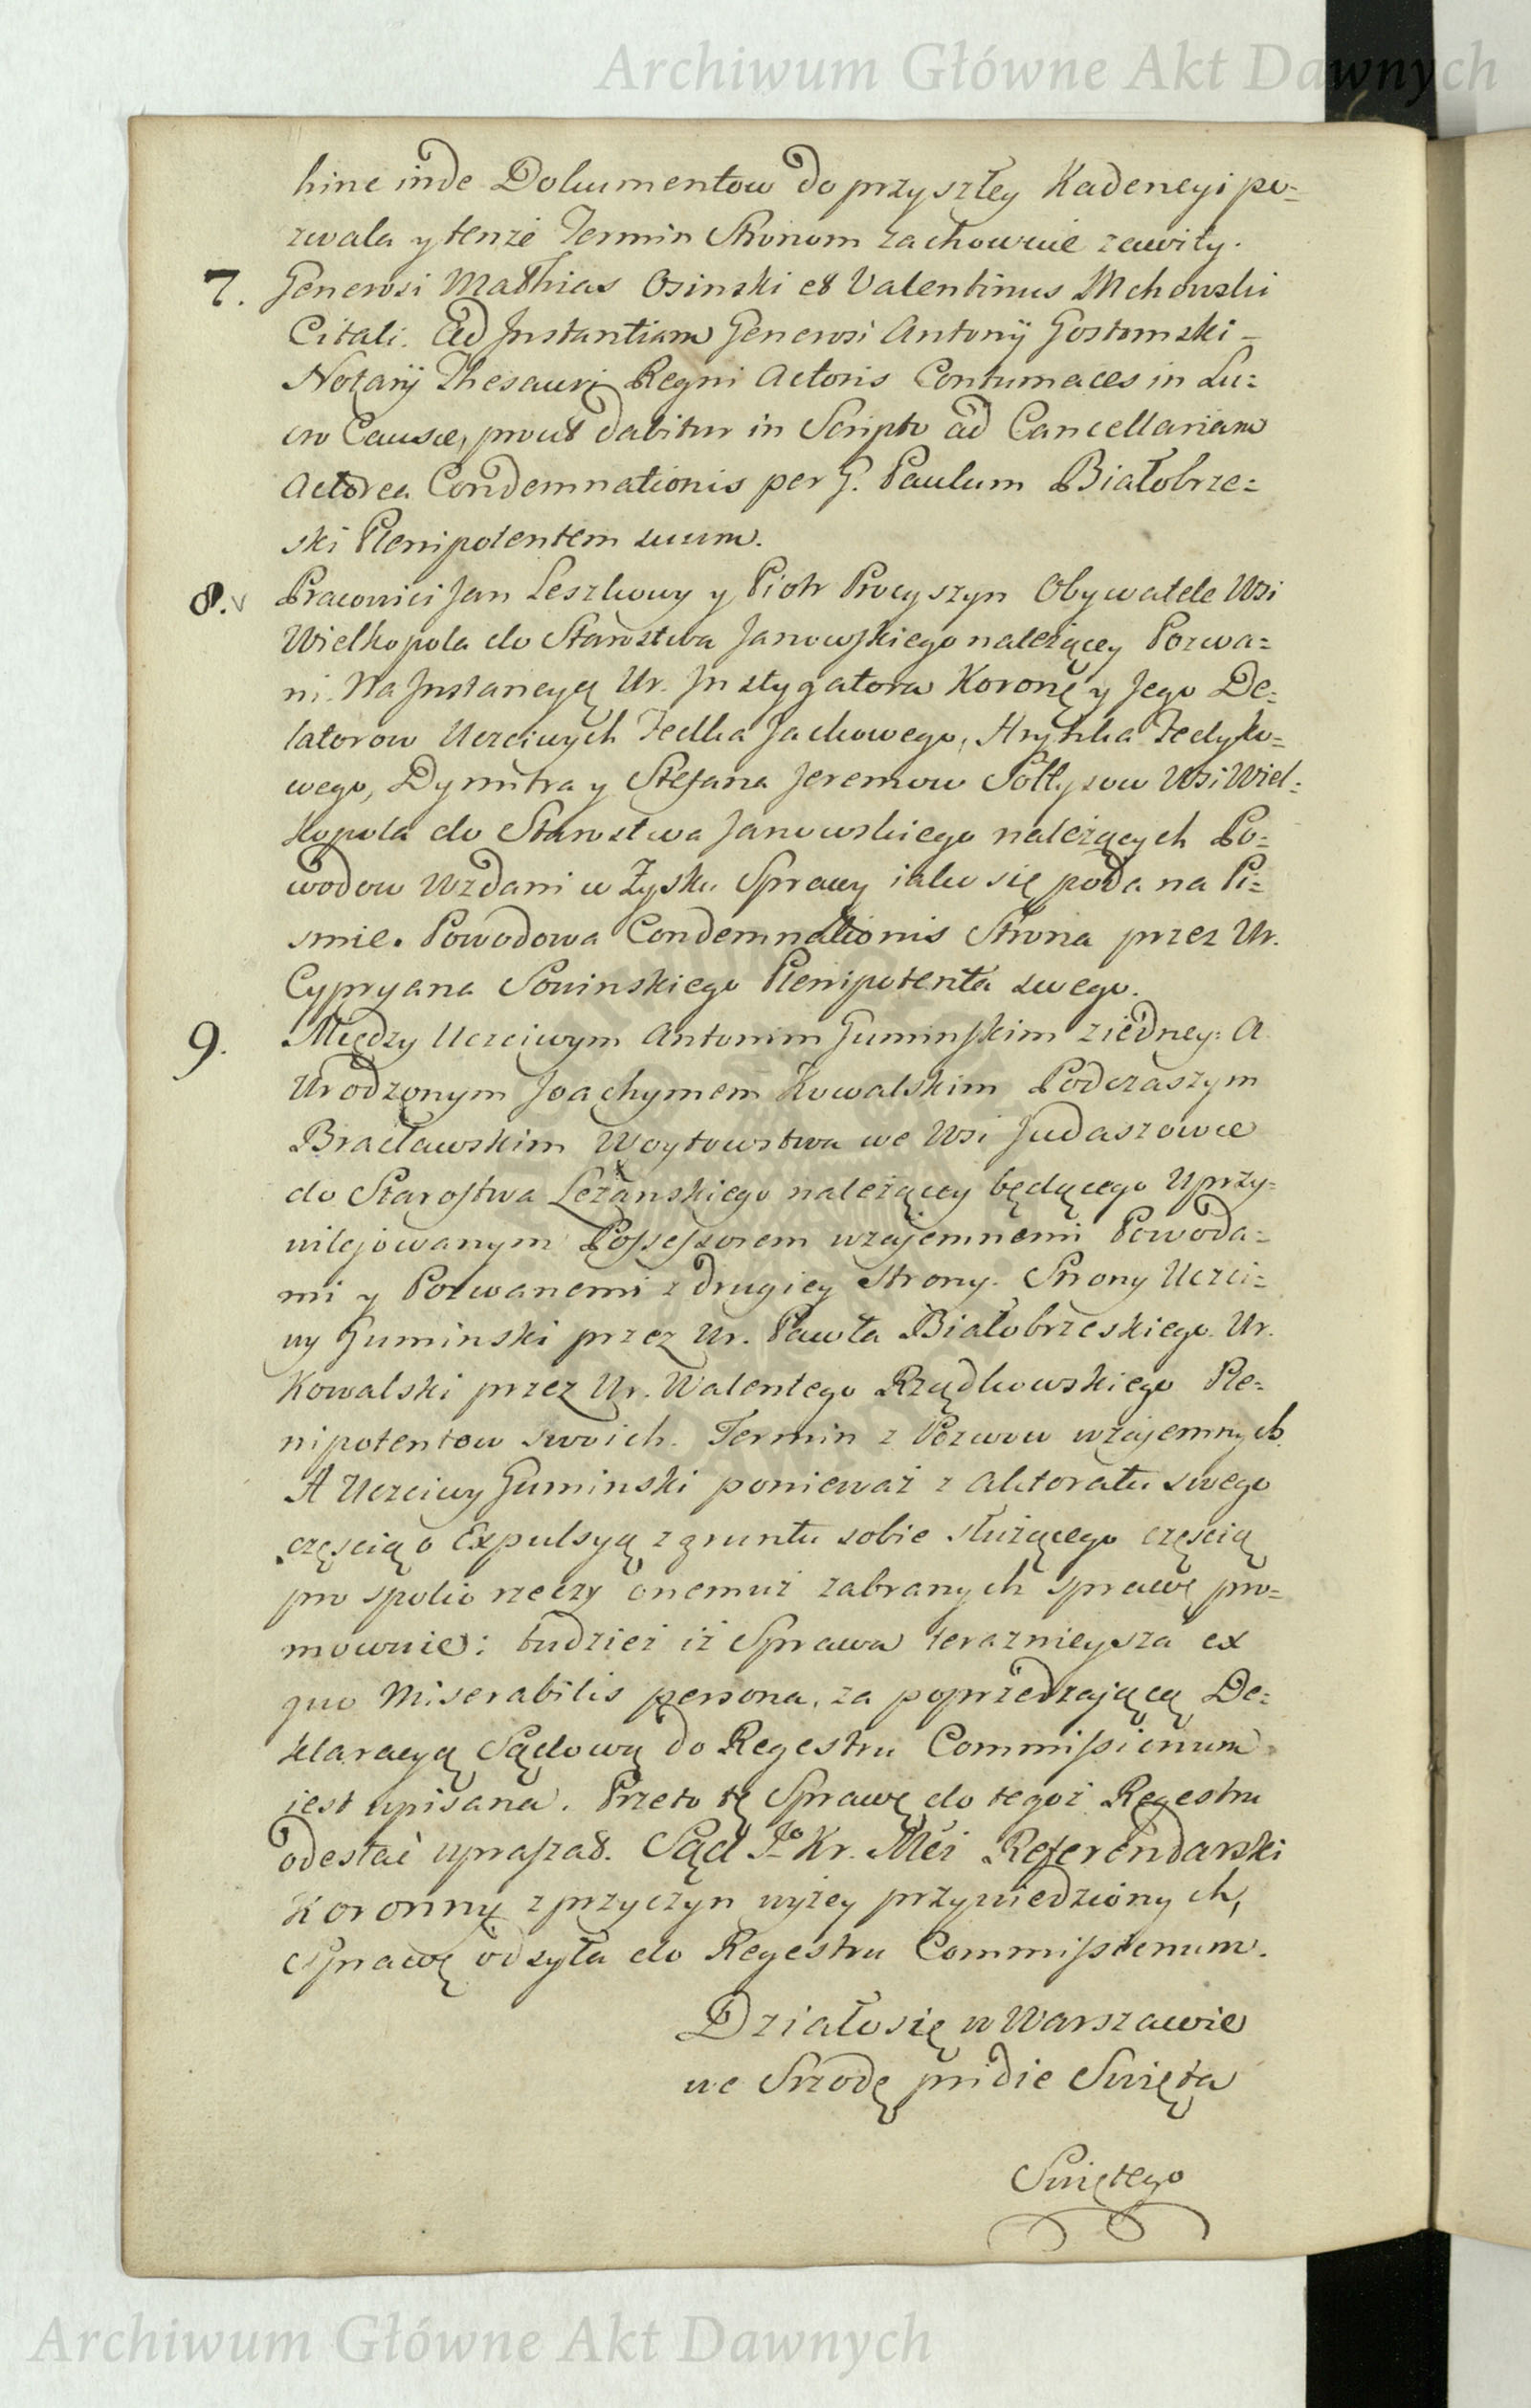 Archiwum Główne Akt Dawnych
hinc inde Dokumentow do przyszłey Kadencyi po=
zwala y tenże Termin Stronom zachowuie zawity.
7. Generosi Mathias Osinski et Valentinus Mchowski
Citati. Ad Instantiam Generosi Antonij Gostomski –
Notarij Thesauri Regni Actoris Contumaces in Lu=
cro Causæ, prout dabitur in Scripto ad Cancellariam
Actorea Condemnationis per G. Paulum Białobrze=
ski Plenipotentem suum.
8. v Pracowici Jan Leszkowy y Piotr Procyszyn Obywatele Wsi
Wielkopola do Starostwa Janowskiego należącey Pozwa=
ni. Na Instancyą Ur. Instygatora Koronę y Jego De=
latorow Uczciwych Fedka Jackowego, Hryńka Fedyko=
wego, Dymitra y Stefana Jeremow Sołtysow Wsi Wiel=
kopola do Starostwa Janowskiego należących Po=
wodow Wzdani w Zysku Sprawy iako się poda na Pi=
smie. Powodowa Condemnationis Strona przez Ur.
Cypryana Sowinskiego Plenipotenta swego.
9. Między Uczciwym Antonim Guminskim z iedney: A
Urodzonym Joachymem Kowalskim Podczaszym
Bracławskim Woytowstwa we Wsi Judaszowce
do Starostwa Leżanskiego należącey będącego Uprzy=
wilejowanym Possessorem wzajemnemi Powoda=
mi y Pozwanemi z drugiey Strony. Strony Uczci=
wy Guminski przez Ur. Pawła Białobrzeskiego. Ur.
Kowalski przez Ur. Walentego Rządkowskiego Ple=
nipotentow swoich. Termin z Pozwow wzajemnych.
A Uczciwy Guminski ponieważ z Aktoratu swego
częscią o Expulsyą z gruntu sobie służącego częscią
pro spolio rzeczy onemuż zabranych sprawę pro=
mowuie: tudzież iż Sprawa teraznieysza ex
quo Miserabilis persona, za poprzedzającą De=
klaracyą Sądową do Regestru Commissionum
iest wpisana. Przeto tę Sprawę do tegoż Regestru
odesłać upraszał. Sąd Jo Kr. Mci Referendarski
Koronny z przyczyn wyżey przywiedzionych,
Sprawę odsyła do Regestru Commissionum.
Działo się w Warszawie
we Srzodę pridie Swięta
Swiętego
Archiwum Główne Akt Dawnych